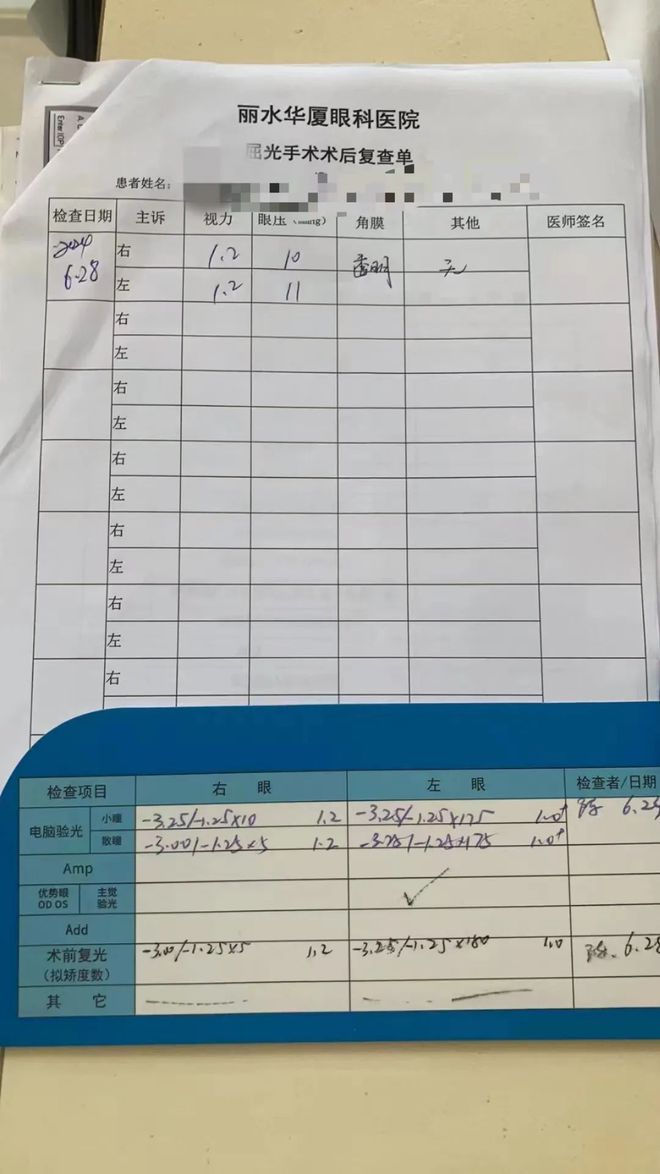 丽水华厦眼科医院
屈光手术术后复查单
患者姓名:
检查日期 主诉 视力 眼压 角膜 其他 医师签名
2024 右 1.2 10 透明 无
6.28 左 1.2 11
右
左
右
左
右
左
右
左
右
左
右
检查项目 右 眼 左 眼 检查者/日期
电脑验光 小瞳 -3.25/-1.25×10 1.2 -3.25/-1.25×175 1.0⁺
散瞳 -3.00/-1.25×5 1.2 -3.25/-1.25×175 1.0⁺
Amp
优势眼 OD OS 主觉验光 ✓
Add
术前复光 -3.00/-1.25×5 1.2 -3.25/-1.25×180 1.0 6.28
(拟矫度数)
其 它